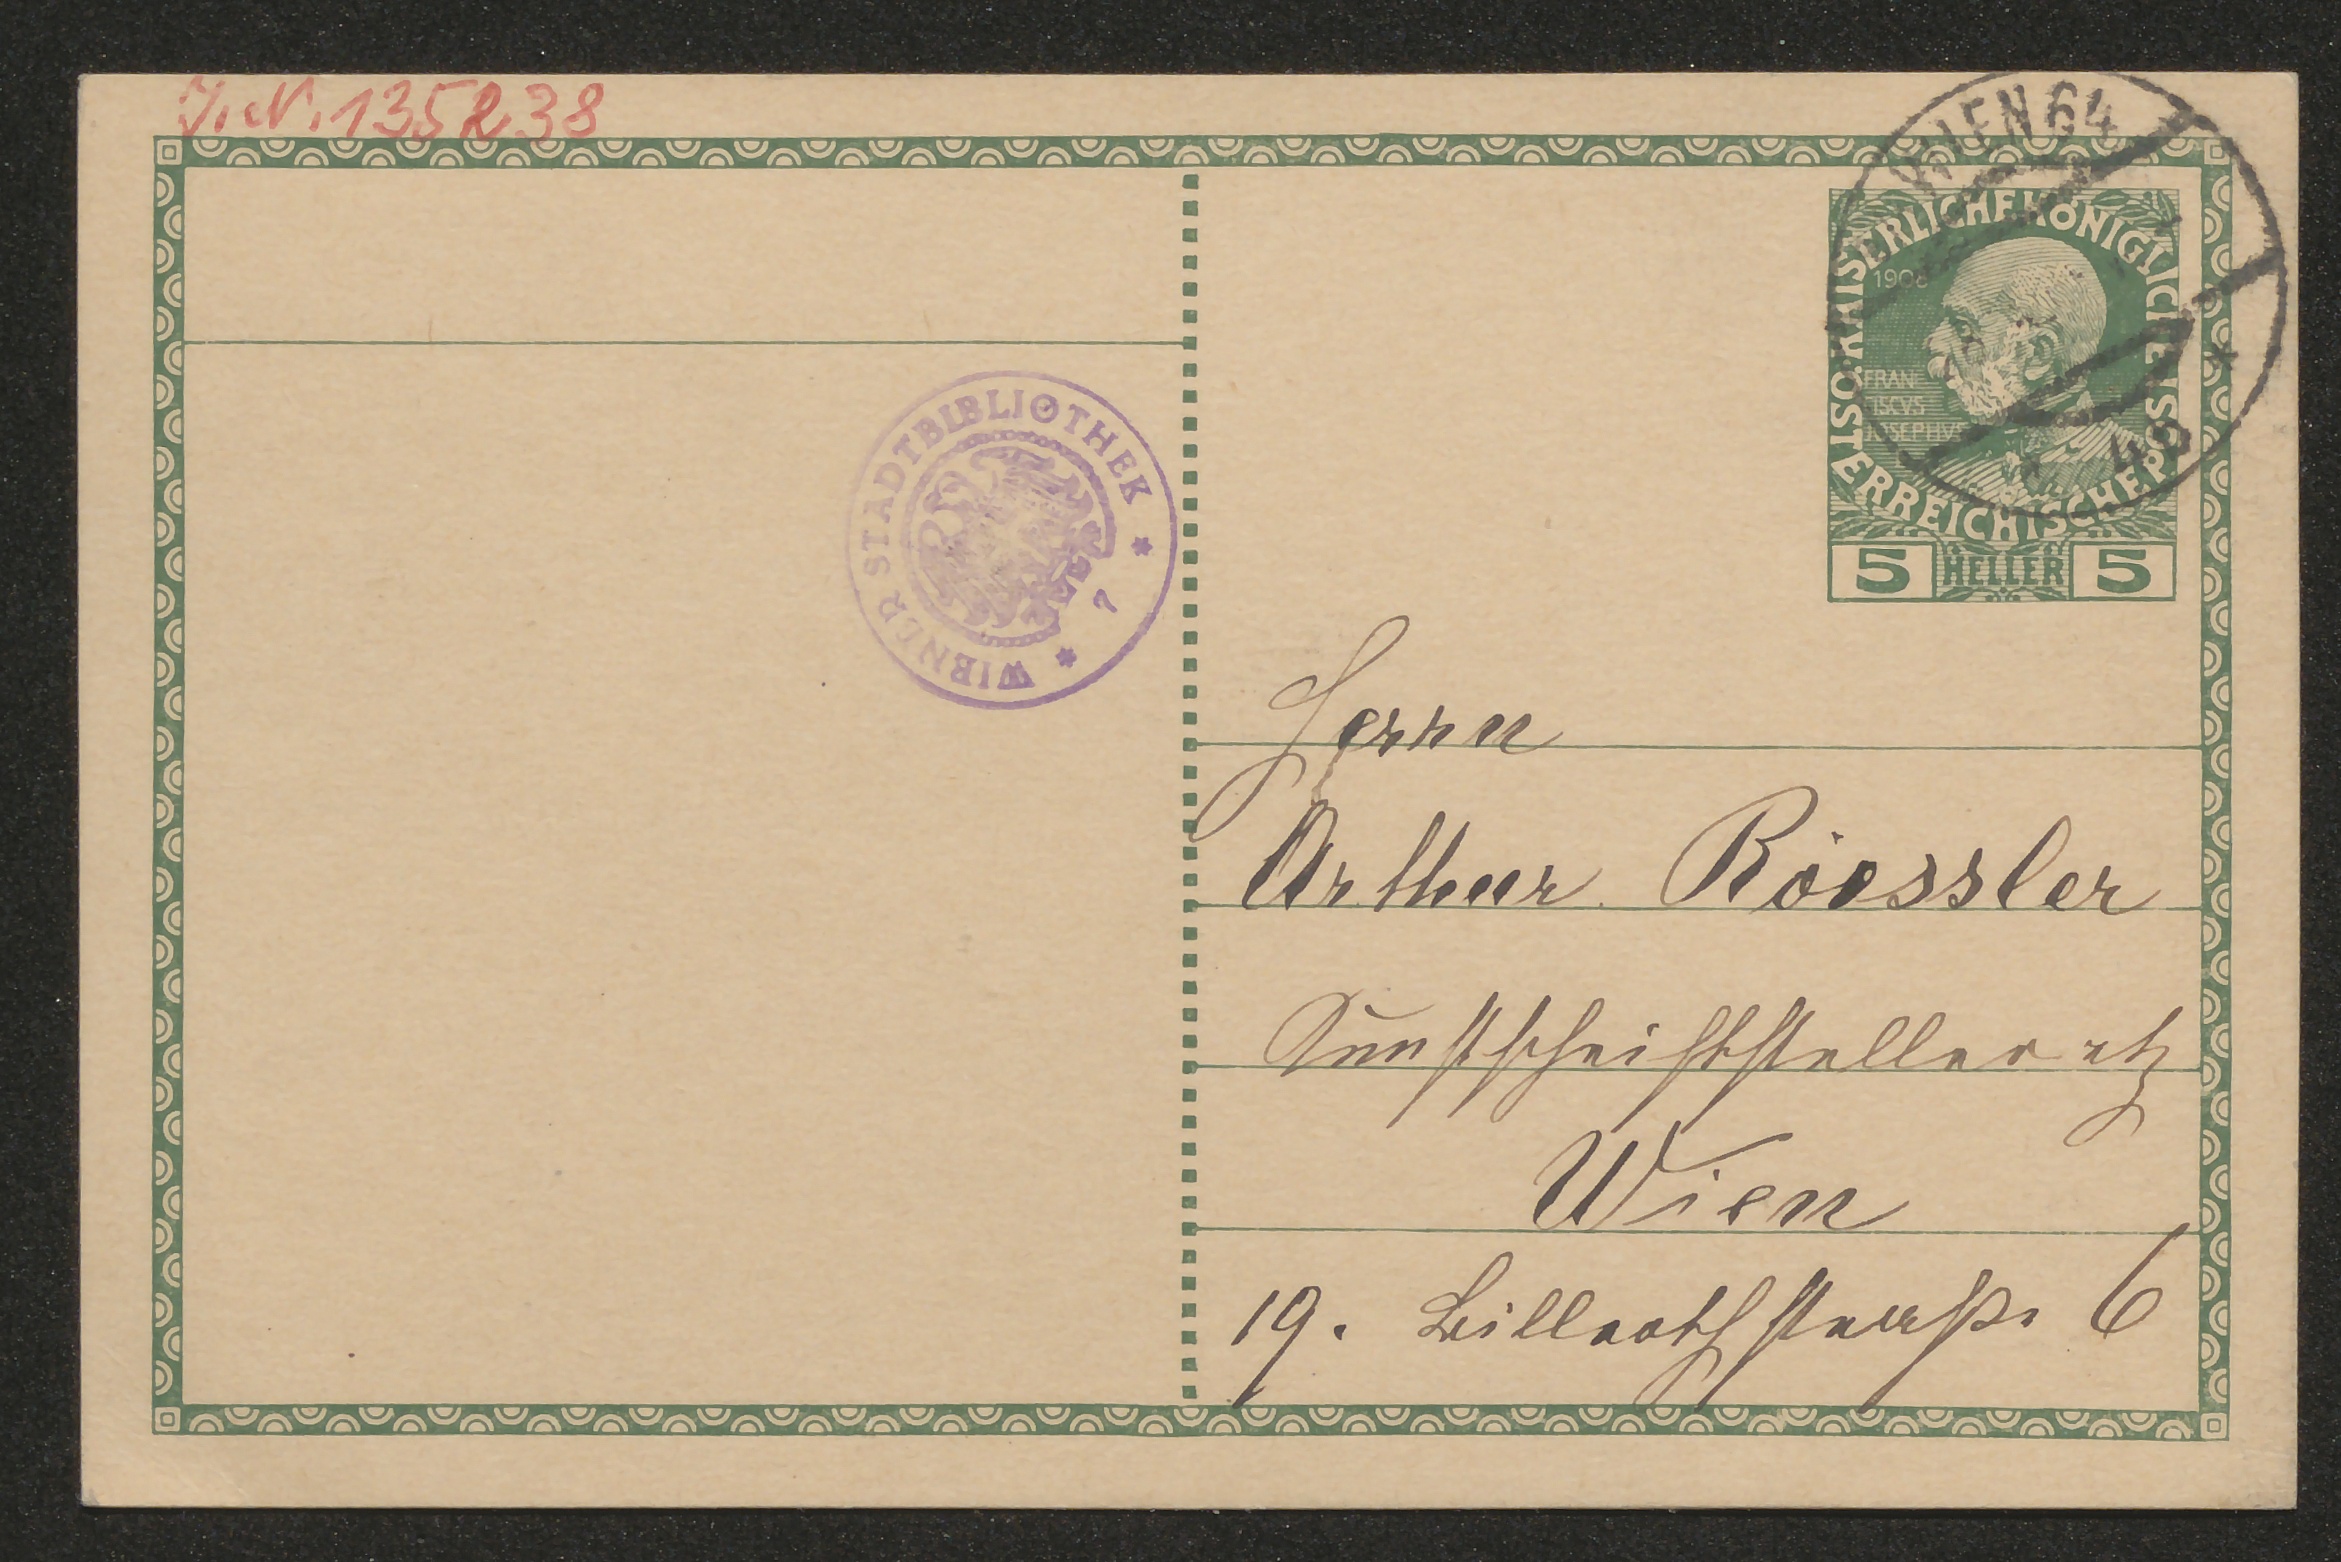 J. N. 135238
WIEN 64
KAISERLICHE KÖNIGLICHE
ÖSTERREICHISCHE POST
1908
FRAN
ISCVS
JOSEPHVS
5 HELLER 5
WIENER STADTBIBLIOTHEK * 7 *
Herrn
Arthur Röessler
Kunstschriftsteller etz
Wien
19. Billrothstraße 6